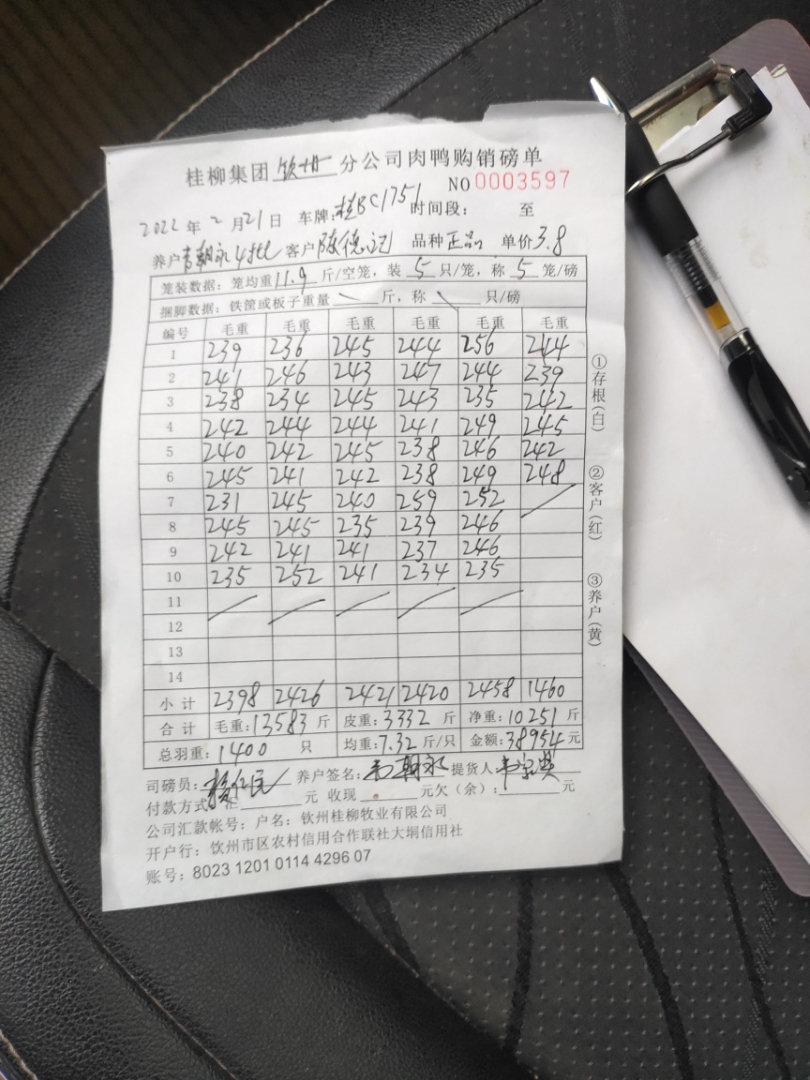 桂柳集团 钦州 分公司肉鸭购销磅单
NO 0003597
2022 年 2 月 21 日 车牌:桂BC1751 时间段: 至
养户 朝永 4批 客户 陈德记 品种 正品 单价 3.8
笼装数据:笼均重 11.9 斤/空笼,装 5 只/笼,称 5 笼/磅
捆脚数据:铁筐或板子重量 \ 斤,称 \ 只/磅
编号 毛重 毛重 毛重 毛重 毛重 毛重
1 239 236 245 244 256 244
2 241 246 243 247 244 239
3 238 234 245 243 235 242
4 242 244 244 241 249 245
5 240 242 245 238 246 242
6 245 241 242 238 249 248
7 231 245 240 259 252 /
8 245 245 235 239 246
9 242 241 241 237 246
10 235 252 241 234 235
11 / / / / /
12
13
14
小计 2398 2426 2421 2420 2458 1460
合计 毛重:13583 斤 皮重:3332 斤 净重:10251 斤
总羽重:1400 只 均重:7.32 斤/只 金额:38954 元
司磅员: 养户签名: 朝永 提货人:
付款方式:汇 元 收现 元欠(余): 元
公司汇款帐号:户名:钦州桂柳牧业有限公司
开户行:钦州市区农村信用合作联社大垌信用社
账号:8023 1201 0114 4296 07
①存根(白) ②客户(红) ③养户(黄)